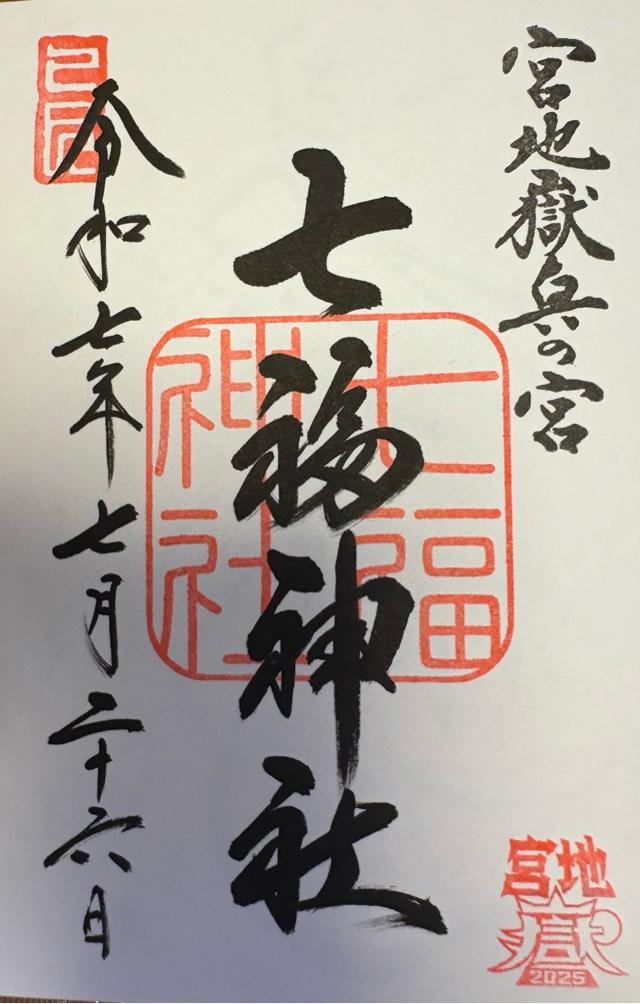 宮地嶽兵の宮
七福神社
七福
神社
令和七年七月二十六日
宮地
嶽
2025